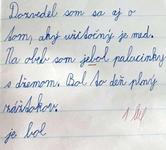 Dozvedel som sa aj o
tom, aký užitočný je med.
Na obed som jebol palacinky
s džemom. Bol to deň plný
zážitkov.
je bol